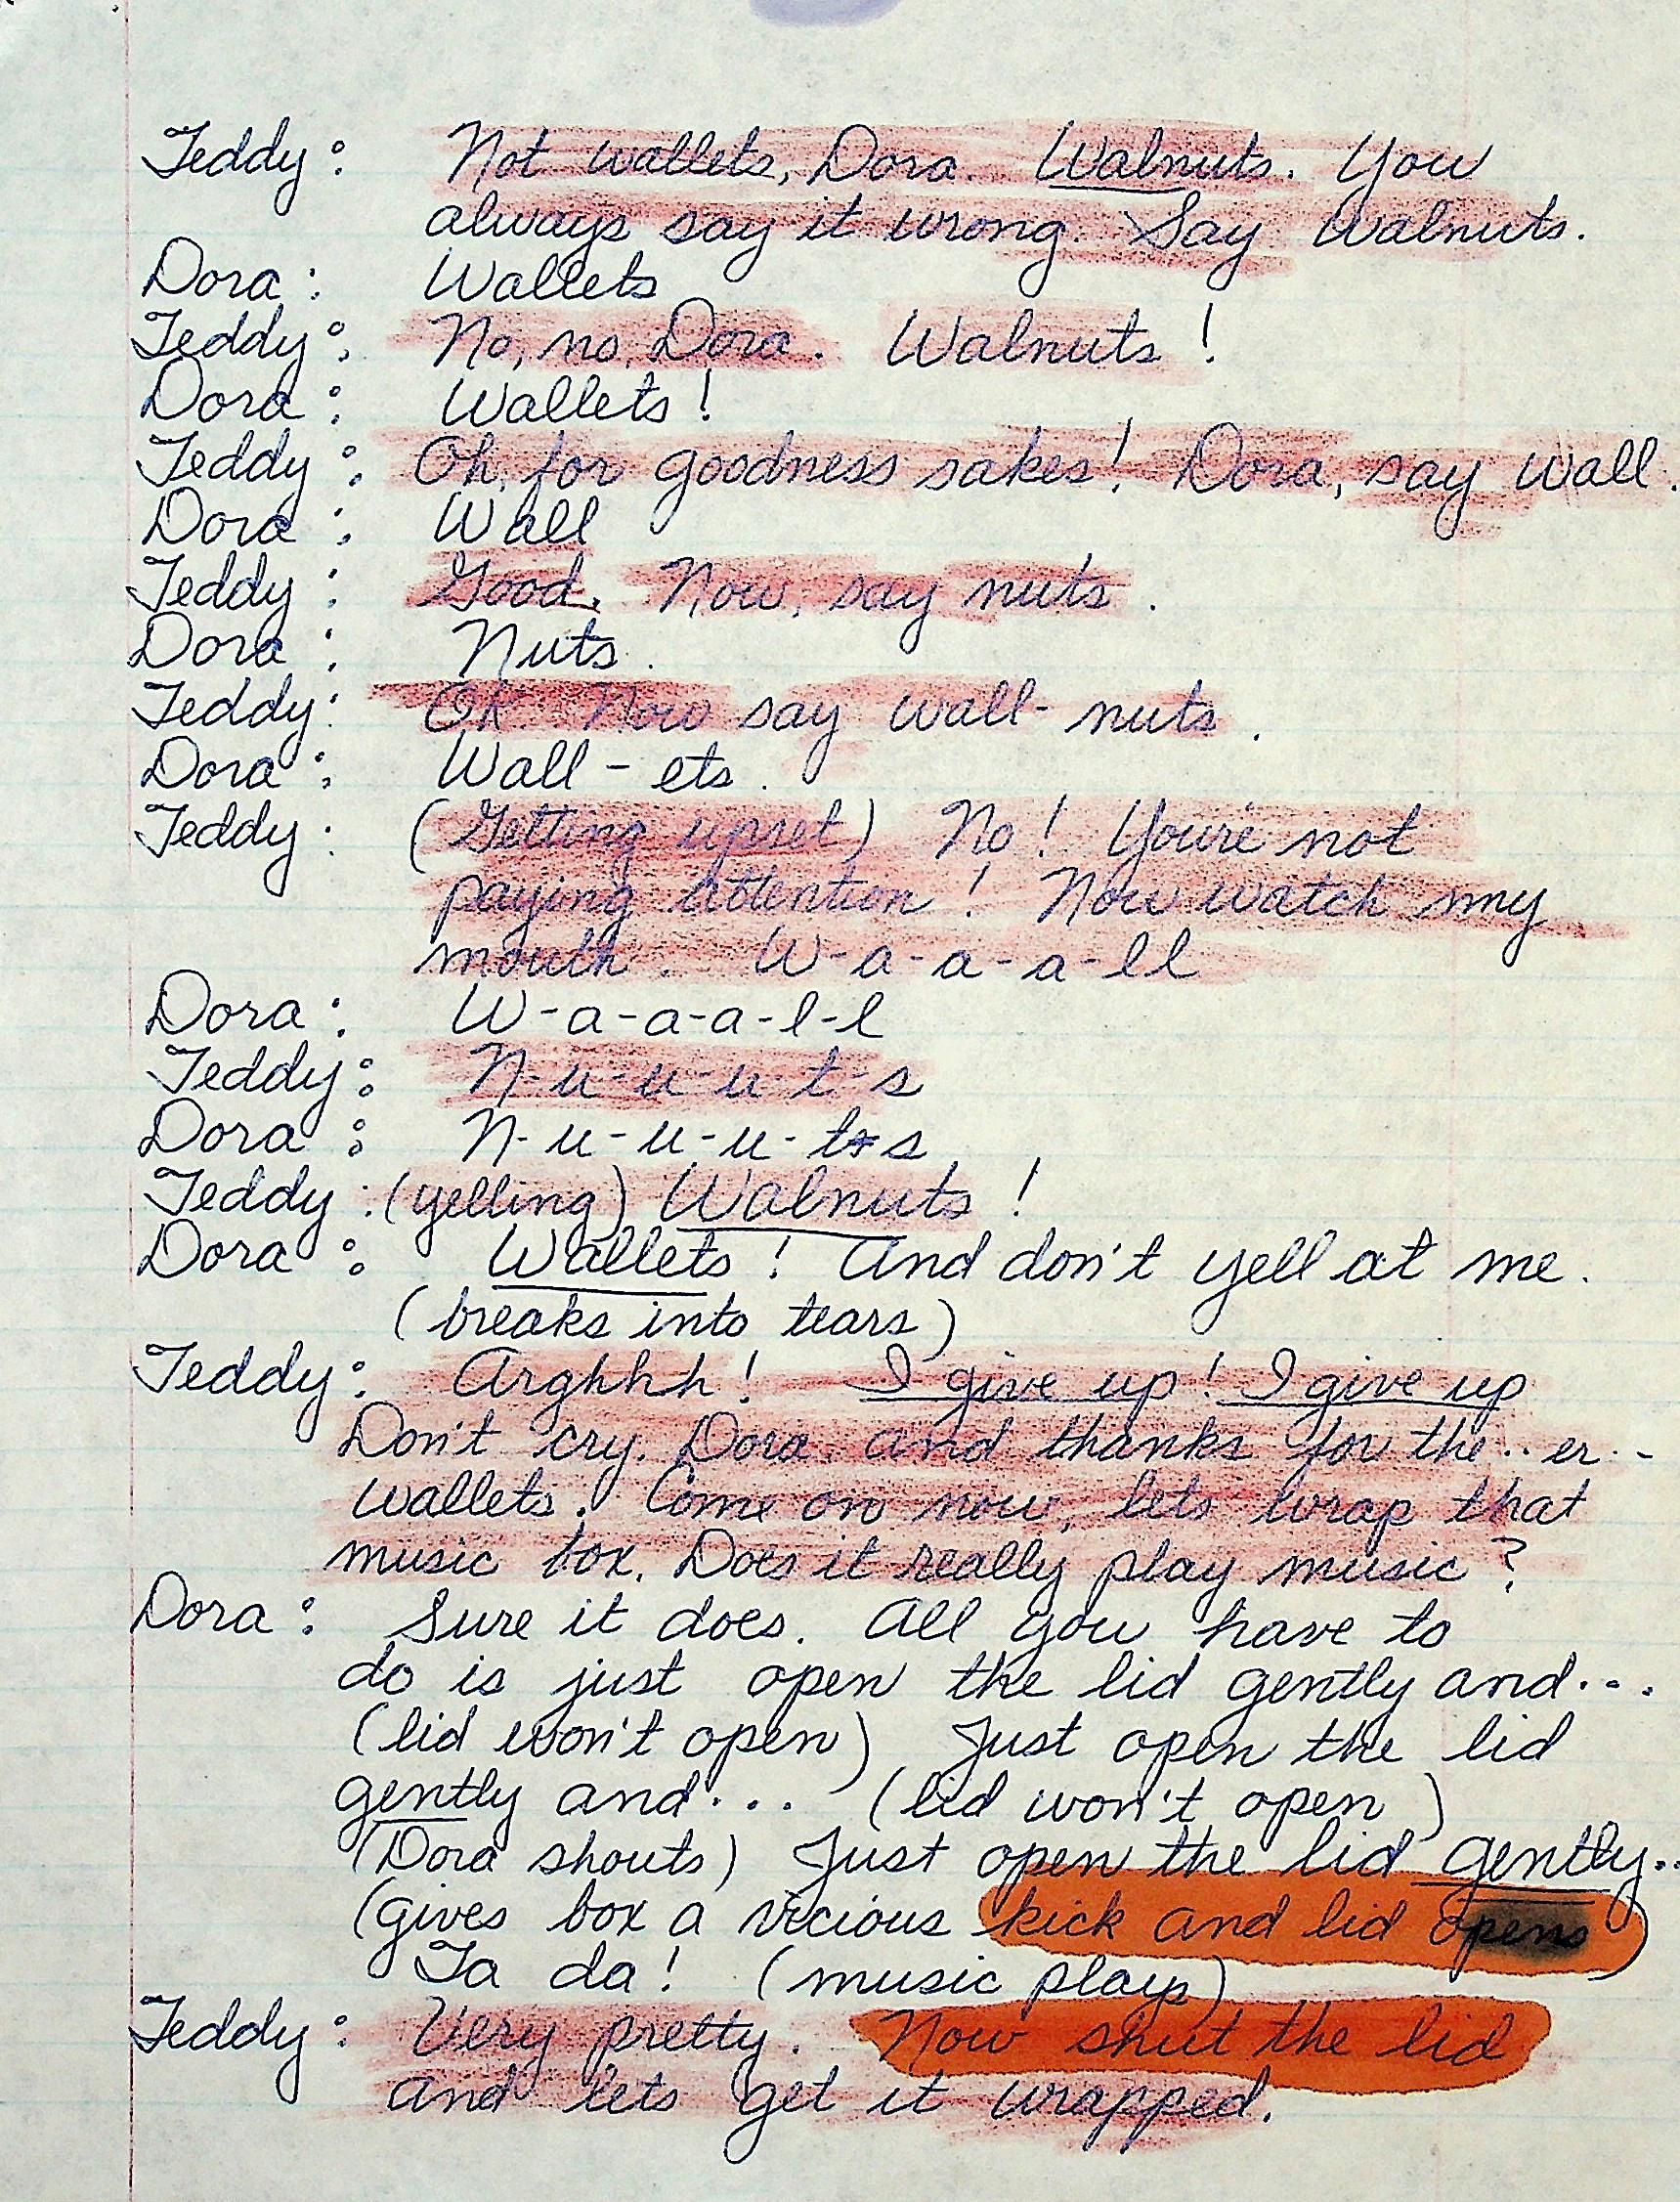 Teddy: Not wallets, Dora. Walnuts. You
always say it wrong. Say Walnuts.
Dora: Wallets
Teddy: No, no, Dora. Walnuts!
Dora: Wallets!
Teddy: Oh, for goodness sakes! Dora, say wall.
Dora: Wall
Teddy: Good. Now, say nuts.
Dora: Nuts.
Teddy: OK. Now say wall-nuts.
Dora: Wall-ets.
Teddy: (Getting upset) No! You're not
paying attention! Now watch my
mouth. W-a-a-a-ll
Dora: W-a-a-a-l-l
Teddy: N-u-u-u-t-s
Dora: N-u-u-u-t-s
Teddy: (yelling) Walnuts!
Dora: Wallets! And don't yell at me.
(breaks into tears)
Teddy: Arghhh! I give up! I give up
Don't cry, Dora. And thanks for the..er..
wallets. Come on now, lets wrap that
music box. Does it really play music?
Dora: Sure it does. All you have to
do is just open the lid gently and...
(lid won't open) Just open the lid
gently and... (lid won't open)
(Dora shouts) Just open the lid gently..
(gives box a vicious kick and lid opens)
Ta da! (music plays)
Teddy: Very pretty. Now shut the lid
and lets get it wrapped.